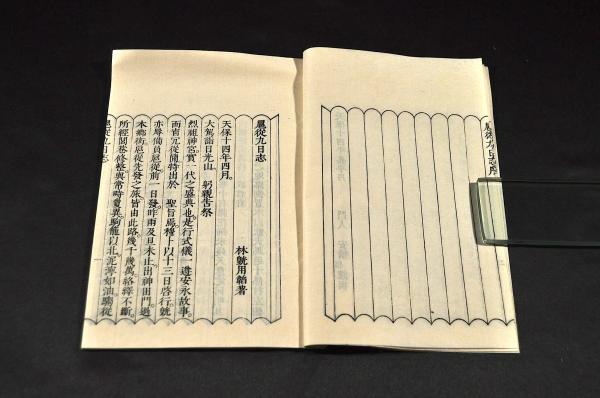 扈從九日志序
扈從九日志
林就用韜著
天保十四年四月。
大駕詣日光山。躬親告祭
烈祖神宮。實一代之盛典也。是行式儀一遵安永故事。
而青冗從簡特出於 聖旨焉。穆卜以十三日啓行。就
亦辱備員扈從。前一日發。昨雨及旦未止。出神田門。過
本鄉街。扈從先發之旅。皆由此路。幾千幾萬。絡繹不斷。
所經閭巷。修整與常時夐異。駒籠以北。泥濘如油。騶從
扈從九日志